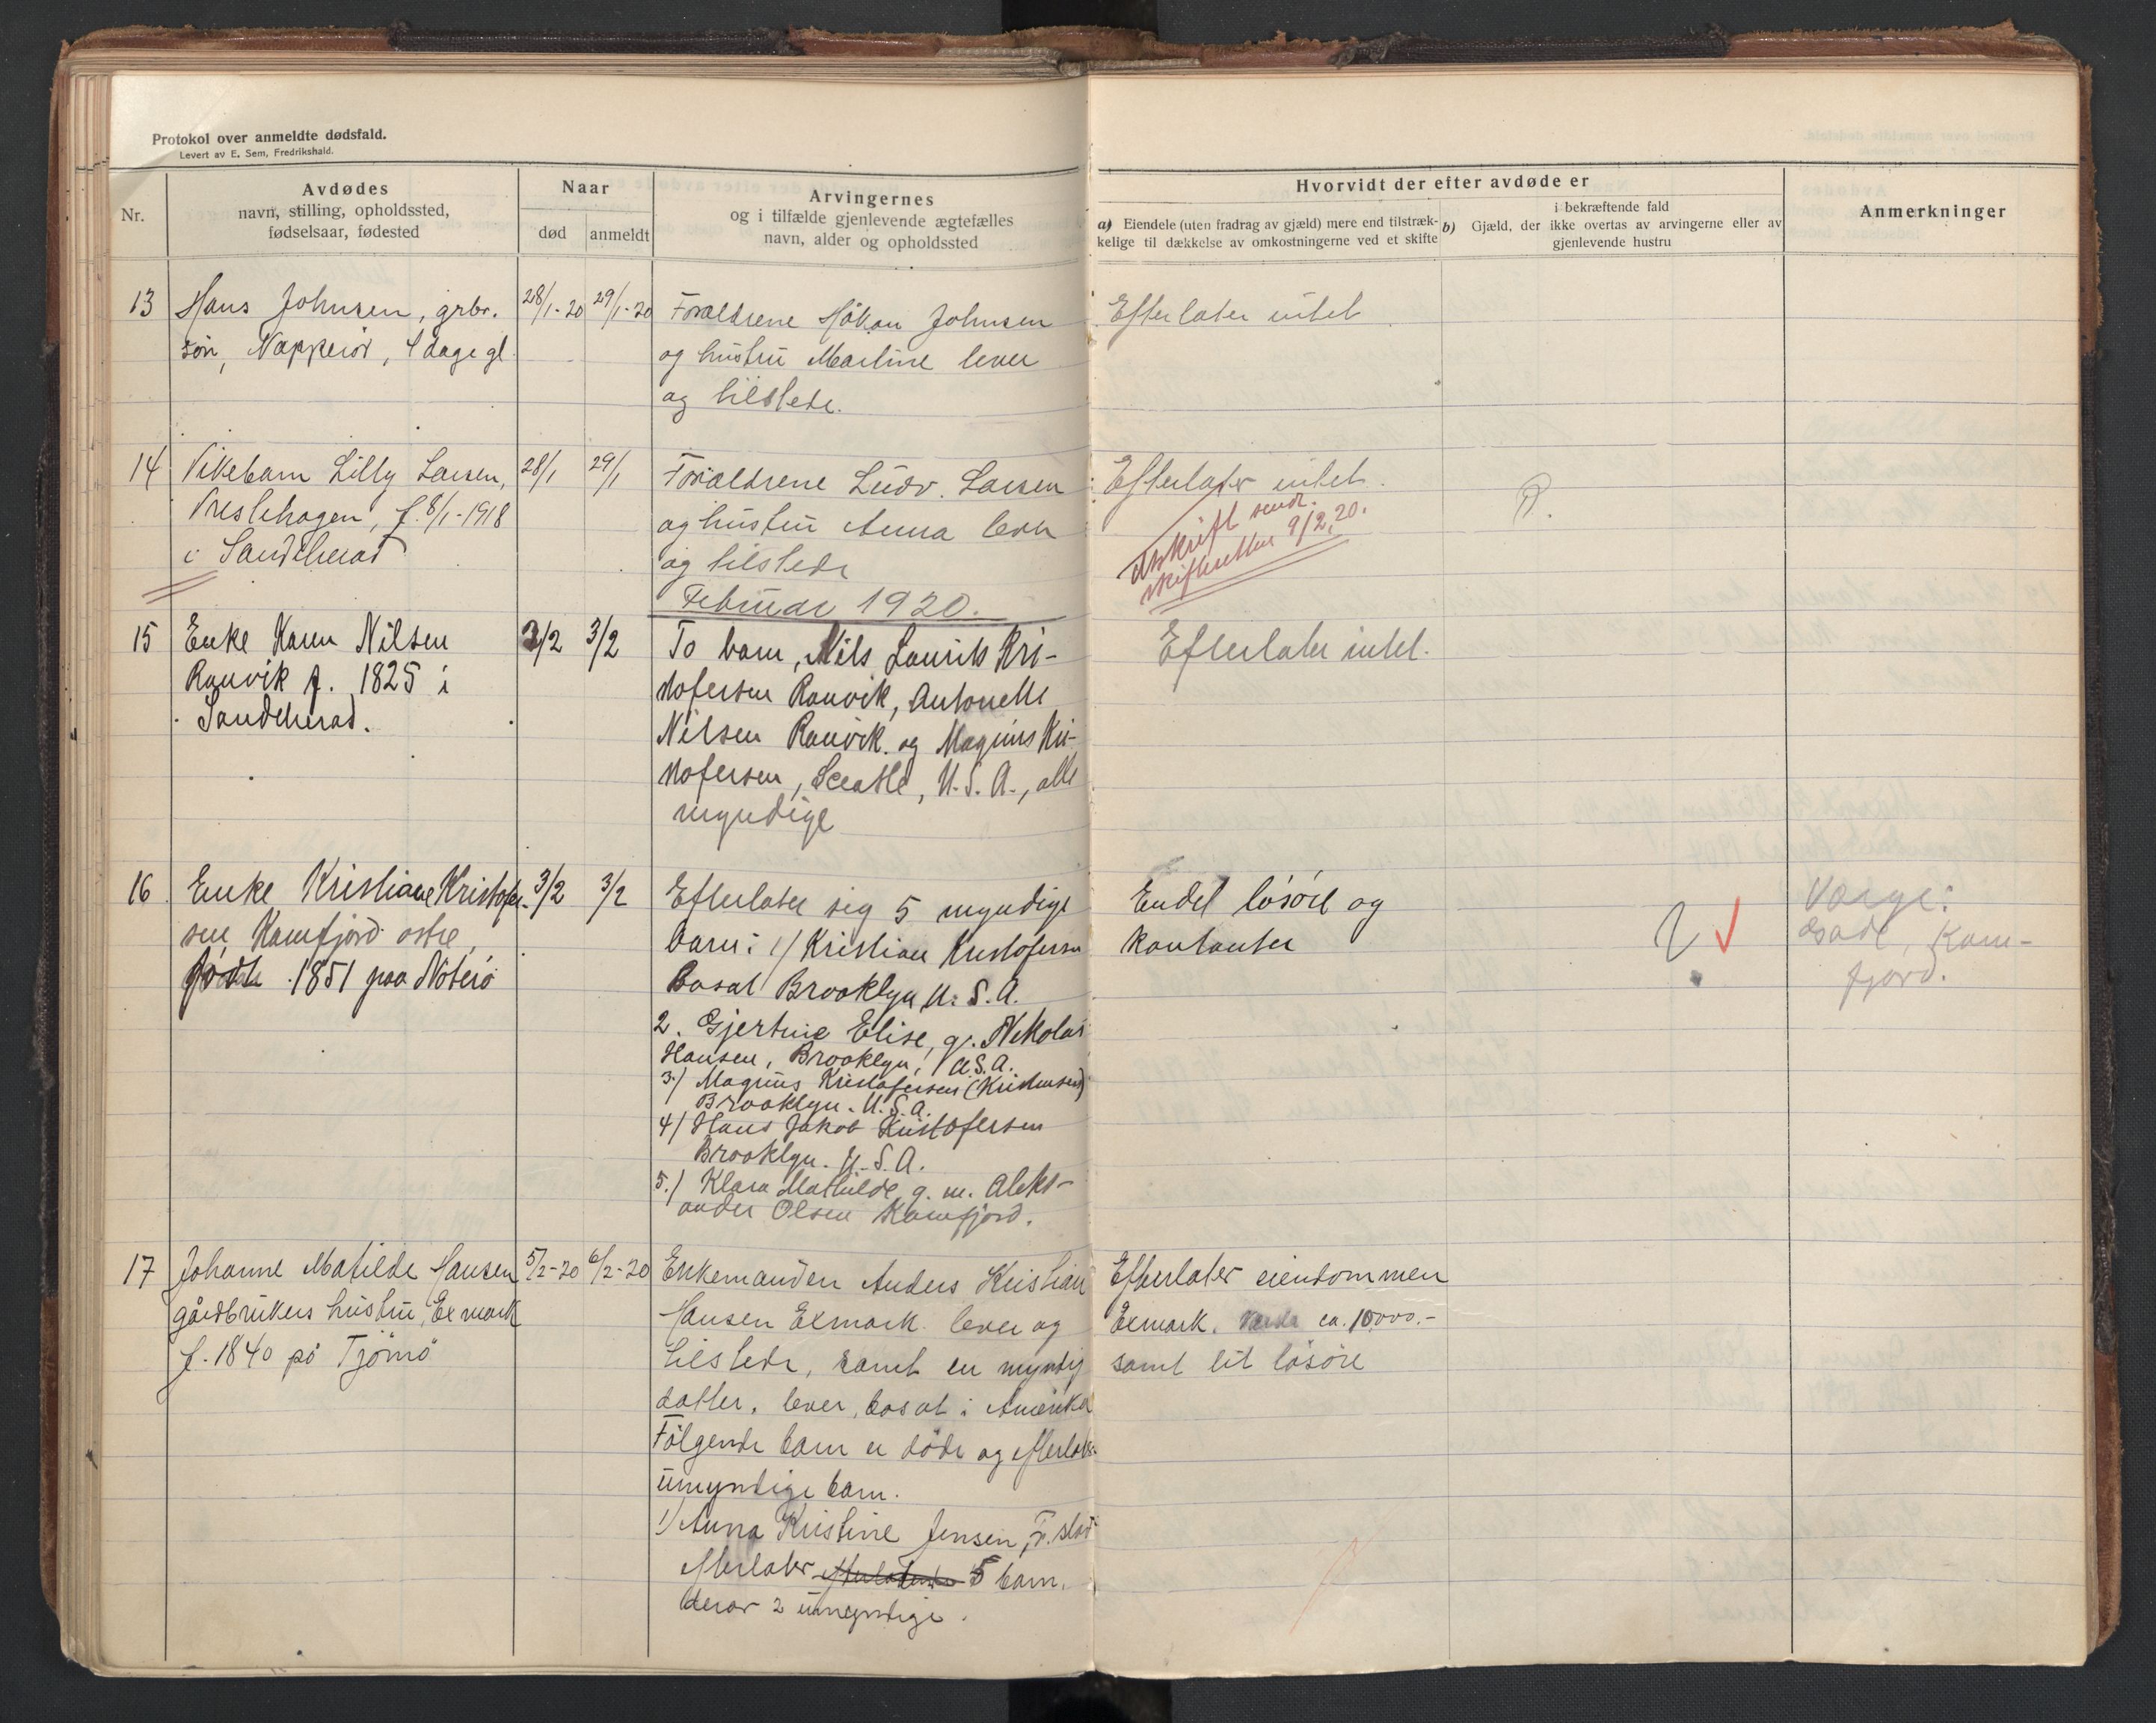 Protokol over anmeldte dødsfald.
Levert av E. Sem, Fredrikshald.
Nr.
Avdødes
navn, stilling, opholdssted,
fødselsaar, fødested
Naar
død
anmeldt
Arvingernes
og i tilfælde gjenlevende ægtefælles
navn, alder og opholdssted
Hvorvidt der efter avdøde er
a) Eiendele (uten fradrag av gjæld) mere end tilstræk-
kelige til dækkelse av omkostningerne ved et skifte
i bekræftende fald
b) Gjæld, der ikke overtas av arvingerne eller av
gjenlevende hustru
Anmerkninger
13
Hans Johnsen, grbr.
søn, Napperød, 4 dage gl.
28/1-20
29/1-20
Foræeldrene Håkon Johnsen
og hustru Martine lever
og tilstede.
Efterlater intet
14
Pikebarn Lilly Larsen,
Presthagen, f. 8/1-1918
i Sandeherad
28/1
29/1
Forældrene Ludv. Larsen
og hustru Anna lever
og tilstede
Efterlater intet.
Utskrift sendt
skifteretten 9/2.20.
P.
Februar 1920.
15
Enke Karen Nilsen
Ranvik f. 1825 i
Sandeherad.
3/2
3/2
To barn, Nils Laurits Kri-
stofersen Ranvik, Antonette
Nilsen Ranvik og Magnus Kri-
stofersen, Seeatle, U.S.A., alle
myndige
Efterlater intet.
16
Enke Kristiane Kristofer-
sen, Kamfjord østre,
født 1851 paa Nøterø
3/2
3/2
Efterlater sig 5 myndige
barn: 1) Kristian Kristofersen
Bosat Brooklyn U.S.A.
2. Gjertine Elise, g. Nikolai
Hansen, Brooklyn, U.S.A.
3.) Magnus Kristofersen (Kristensen)
Brooklyn. U.S.A.
4) Hans Jakob Kristofersen
Brooklyn. U.S.A.
5.) Klara Mathilde, g. m. Aleks-
ander Olsen Kamfjord.
Endel løsøre og
kontanter
Værge:
Kam-
fjord.
17
Johanne Matilde Hansen
gårdbrukers hustru, Exmark
f. 1840 på Tjømø
5/2-20
6/2-20
Enkemanden Anders Kristian
Hansen Exmark lever og
tilstede, samt en myndig
datter, lever, bosat i Amerika
Følgende barn er døde og efterlater
umyndige barn.
1) Anna Kristine Jensen, Fr.stad
efterlater 5 barn.
derav 2 umyndige.
Efterlater eiendommen
Exmark. Værdi ca. 10000.-
samt lit løsøre